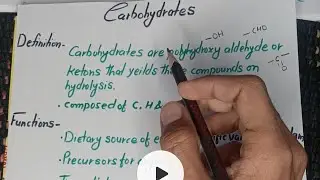 Carbohydrates
-OH
-CHO
Definition-
Carbohydrates are polyhydroxy aldehyde or
-C-
O
ketons that yeilds these compounds on
hydrolysis.
• composed of C, H &
Functions-
• Dietary source of
Precursors for